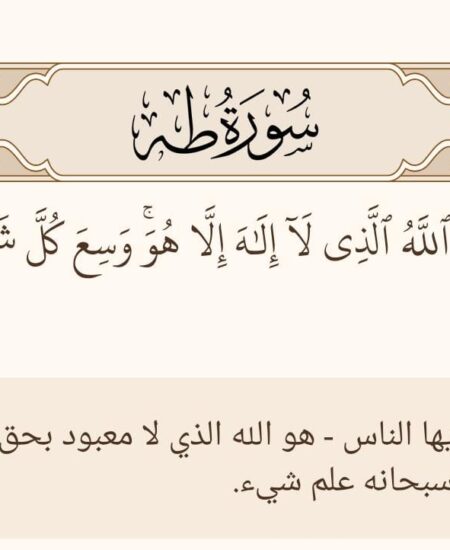 سُورَةُ طه
ٱللَّهُ ٱلَّذِى لَآ إِلَـٰهَ إِلَّا هُوَ ۚ وَسِعَ كُلَّ
الناس - هو الله الذي لا معبود بحق
سبحانه علم شيء.